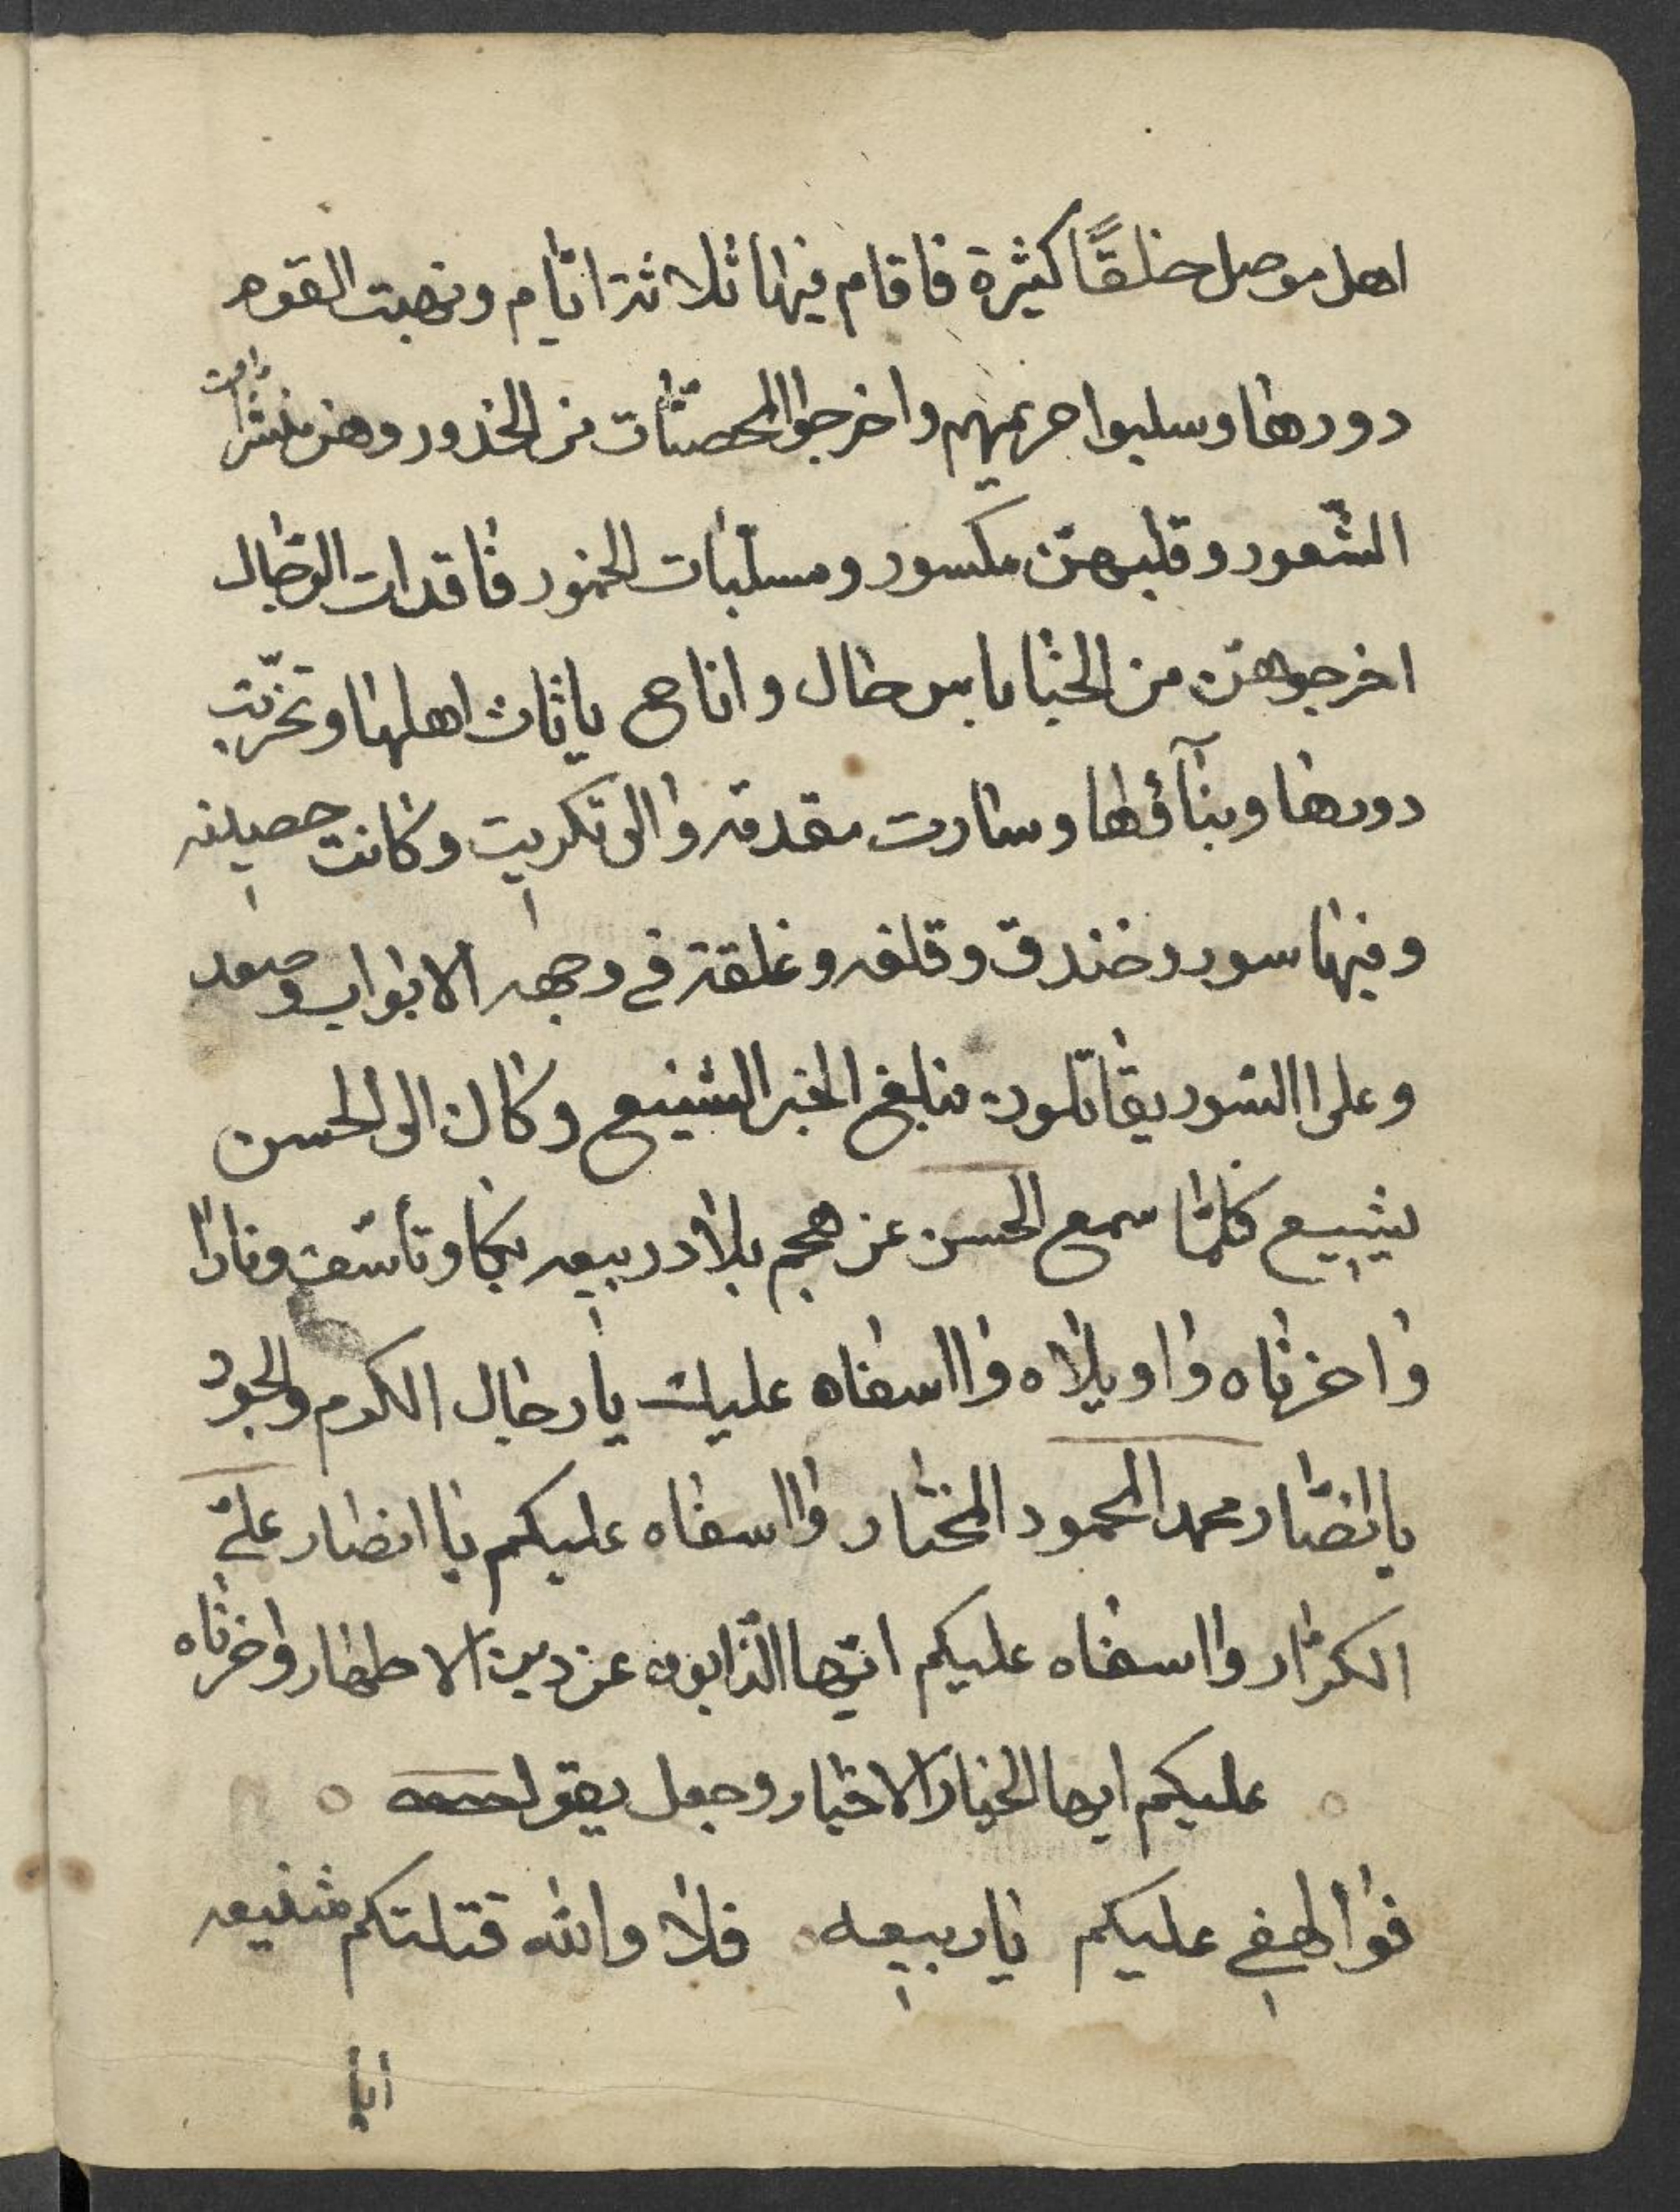 اهل موصل خلقًا كثيرة فاقام فيها ثلاثة ايّام ونهبت القوم
دورها وسلبوا حريمهم واخرجوا المحصنّات من الخدور وهن منشرات
الشّعور وقلبهنّ مكسور ومسلّبات الخمور فاقدات الرّجال
اخرجوهنّ من الخبا بابس حال واناح باثاث اهلها وتخرّبت
دورها وبنآؤها وسارت مقدمة والى تكريت وكانت حصينه
وفيها سور وخندق وقلعه وغلقة في وجهه الابواب وصعد
وعلى السّور يقاتلون فبلغ الخبر الشنيع وكان الى الحسن
يشيع فلمّا سمع الحسن عن هجم بلاد ربيعه بكا وتأسّف ونادا
واحزناه واويلاه وااسفاه عليك يا رجال الكرم والجود
يا انصّار محمد المحمود المختار وااسفاه عليكم يا انصار عليّ
الكرّار وااسفاه عليكم ايّها الذّابون عن دين الاطهار واحزناه
عليكم ايها الخيار الاخيار وجعل يقول
فوا لهفي عليكم يا ربيعه فلا والله قتلتكم شنيعه
ايا